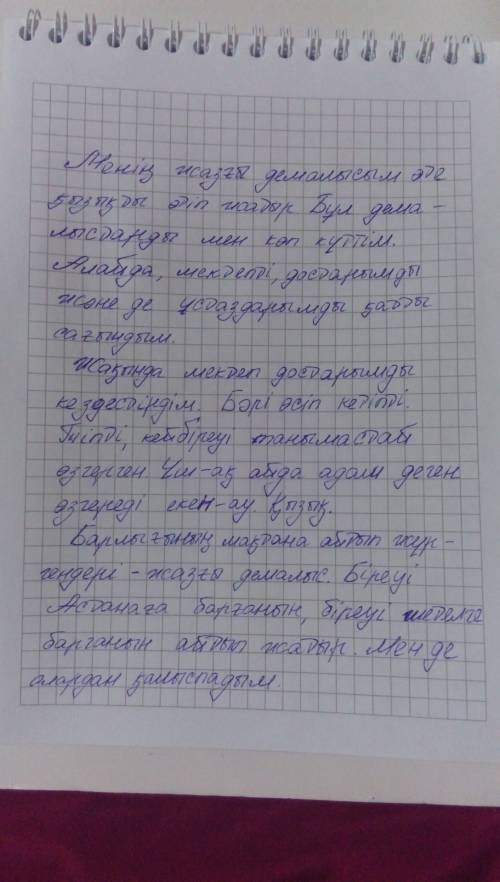 Менің жазғы демалысым өте
қызықты өтіп жатыр Бұл дема-
лыстанды мен көп күттім.
Алайда, мектепті, достарымды
және де ұстаздарымды қатты
сағындым.
Жақында мектеп достарымды
кездестірдім. Бәрі өсіп кетіпті.
Тіпті, кейбіреуі танымастай
өзгерген Үш-ақ айда адам деген
өзгереді екен-ау. Қызық.
Барлығының мақтана айтып жүр-
гендері - жазғы демалыс. Біреуі
Астанаға барғанын, біреуі шетелге
барғанын айтып жатыр. Мен де
олардан қалыспадым.